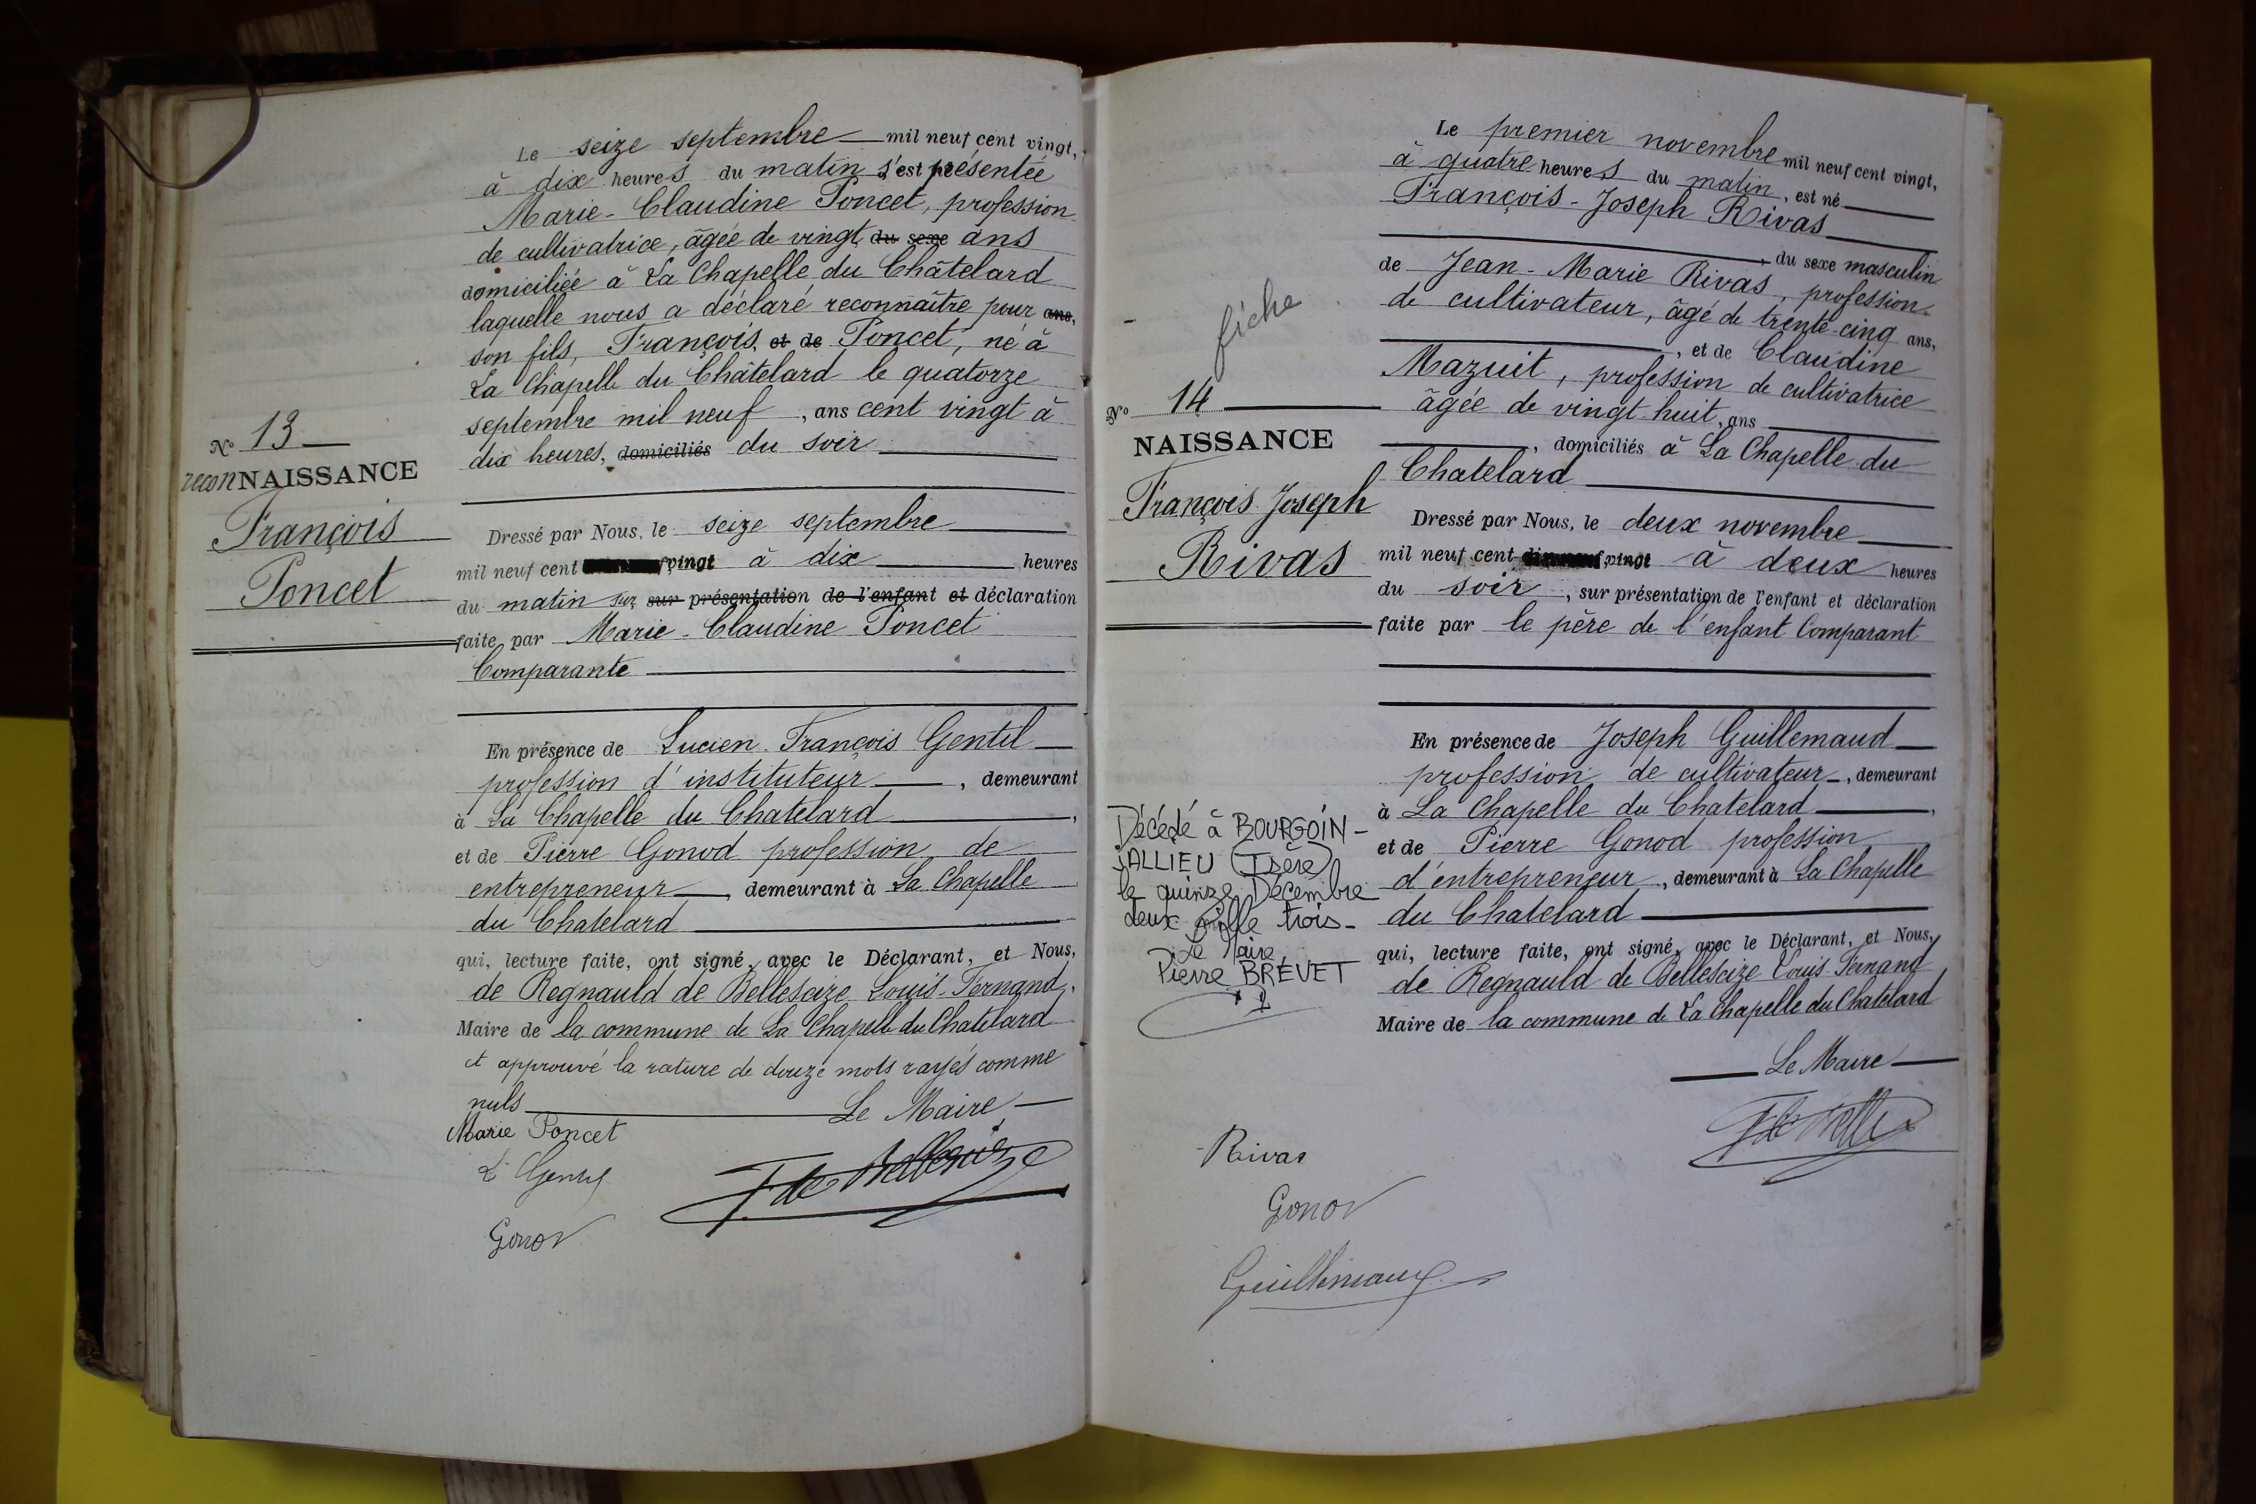 Le seize septembre mil neuf cent vingt,
à dix heures du matin s'est présentée
Marie-Claudine Poncet, profession
de cultivatrice, âgée de vingt du sexe ans
domiciliée à La Chapelle du Châtelard
laquelle nous a déclaré reconnaître pour ans,
son fils, François, et de Poncet, né à
La Chapelle du Châtelard le quatorze
septembre mil neuf , ans cent vingt à
dix heures, domiciliés du soir
No 13
reconNAISSANCE
François
Poncet
Dressé par Nous, le seize septembre
mil neuf cent vingt à dix heures
du matin sur sur présentation de l'enfant et déclaration
faite par Marie-Claudine Poncet
Comparante
En présence de Lucien François Gentil
profession d'instituteur , demeurant
à La Chapelle du Chatelard ,
et de Pierre Gonod profession de
entrepreneur , demeurant à La Chapelle
du Chatelard
qui, lecture faite, ont signé, avec le Déclarant, et Nous,
de Regnauld de Bellescize Louis-Fernand,
Maire de la commune de La Chapelle du Chatelard
et approuvé la rature de douze mots rayés comme
nuls Le Maire
Marie Poncet
L Gentil
Gonod
F de Bellescize
Le premier novembre mil neuf cent vingt,
à quatre heures du matin, est né
François-Joseph Rivas
, du sexe masculin
de Jean-Marie Rivas, profession
de cultivateur, âgé de trente-cinq ans,
, et de Claudine
Mazuit, profession de cultivatrice
âgée de vingt huit, ans
, domiciliés à La Chapelle du
Chatelard
fiche
No 14
NAISSANCE
François Joseph
Rivas
Dressé par Nous, le deux novembre
mil neuf cent dix-neuf vingt à deux heures
du soir , sur présentation de l'enfant et déclaration
faite par le père de l'enfant Comparant
En présence de Joseph Guillemaud
profession de cultivateur , demeurant
à La Chapelle du Chatelard ,
et de Pierre Gonod profession
d'entrepreneur , demeurant à La Chapelle
du Chatelard
qui, lecture faite, ont signé, avec le Déclarant, et Nous,
de Regnauld de Bellescize Louis-Fernand
Maire de la commune de La Chapelle du Chatelard
Le Maire
Décédé à BOURGOIN-
JALLIEU (Isère)
le quinze Décembre
deux mille trois-
Le Maire,
Pierre BREVET
Rivas
Gonod
Guillemaud